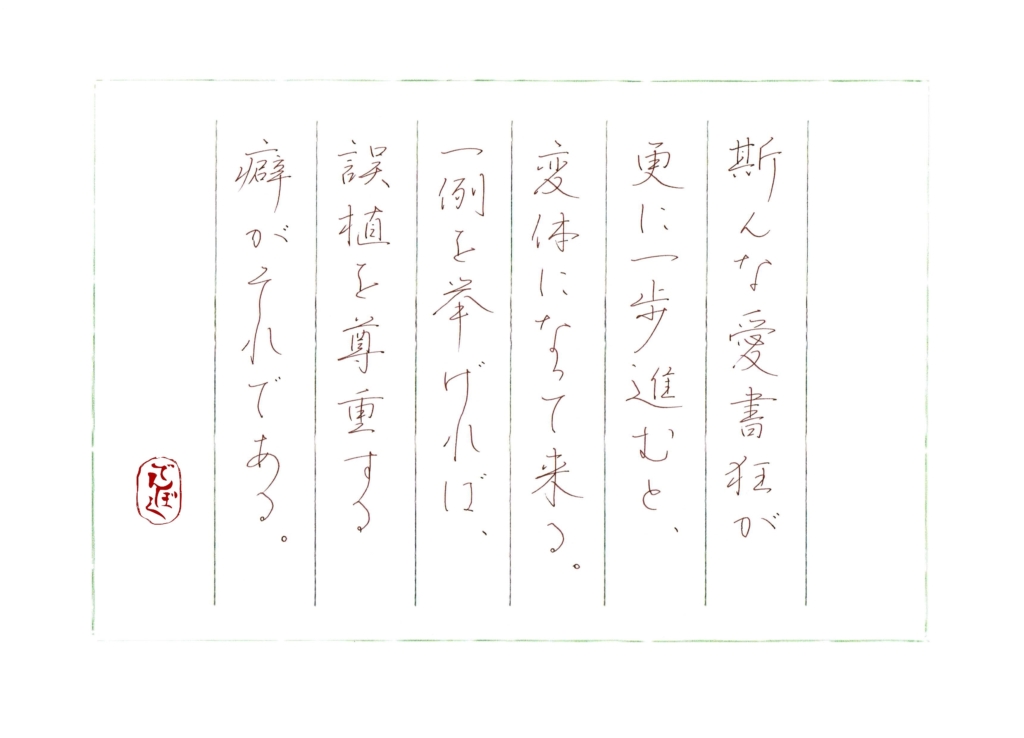 斯んな愛書狂が
更に一歩進むと、
変体になって来る。
一例を挙げれば、
誤植を尊重する
癖がそれである。
でんぼく